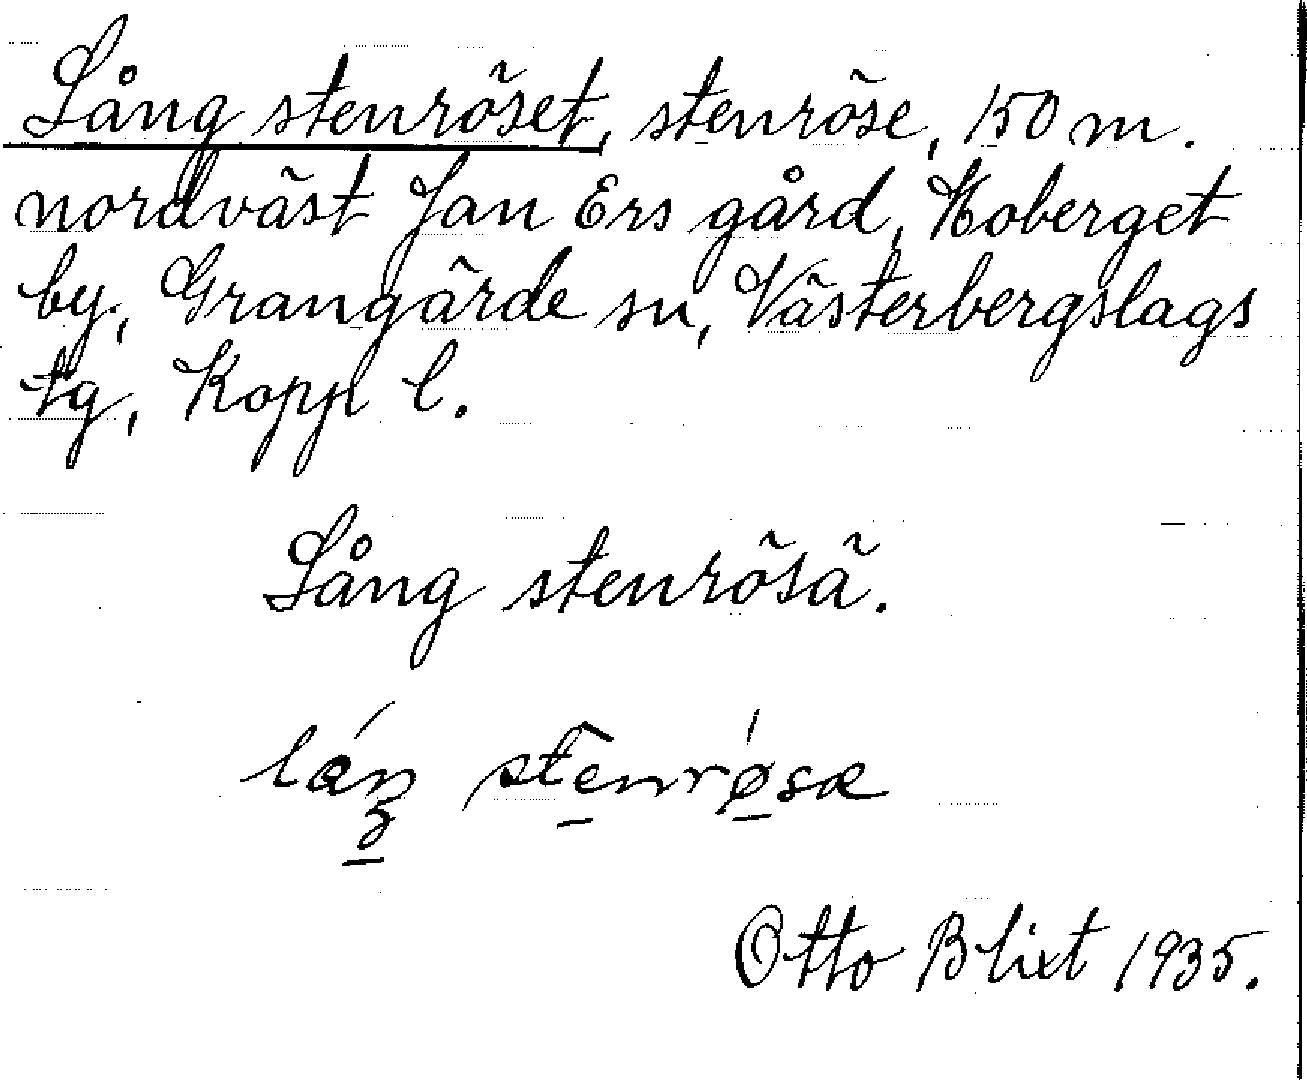 Lång stenröset, stenröse, 150 m.
nordväst Jan Ers gård, Moberget
by, Grangärde sn, Västerbergslags
tg, Kopp l.
Lång stenrösä.
stenrøsæ
Otto Blixt 1935.